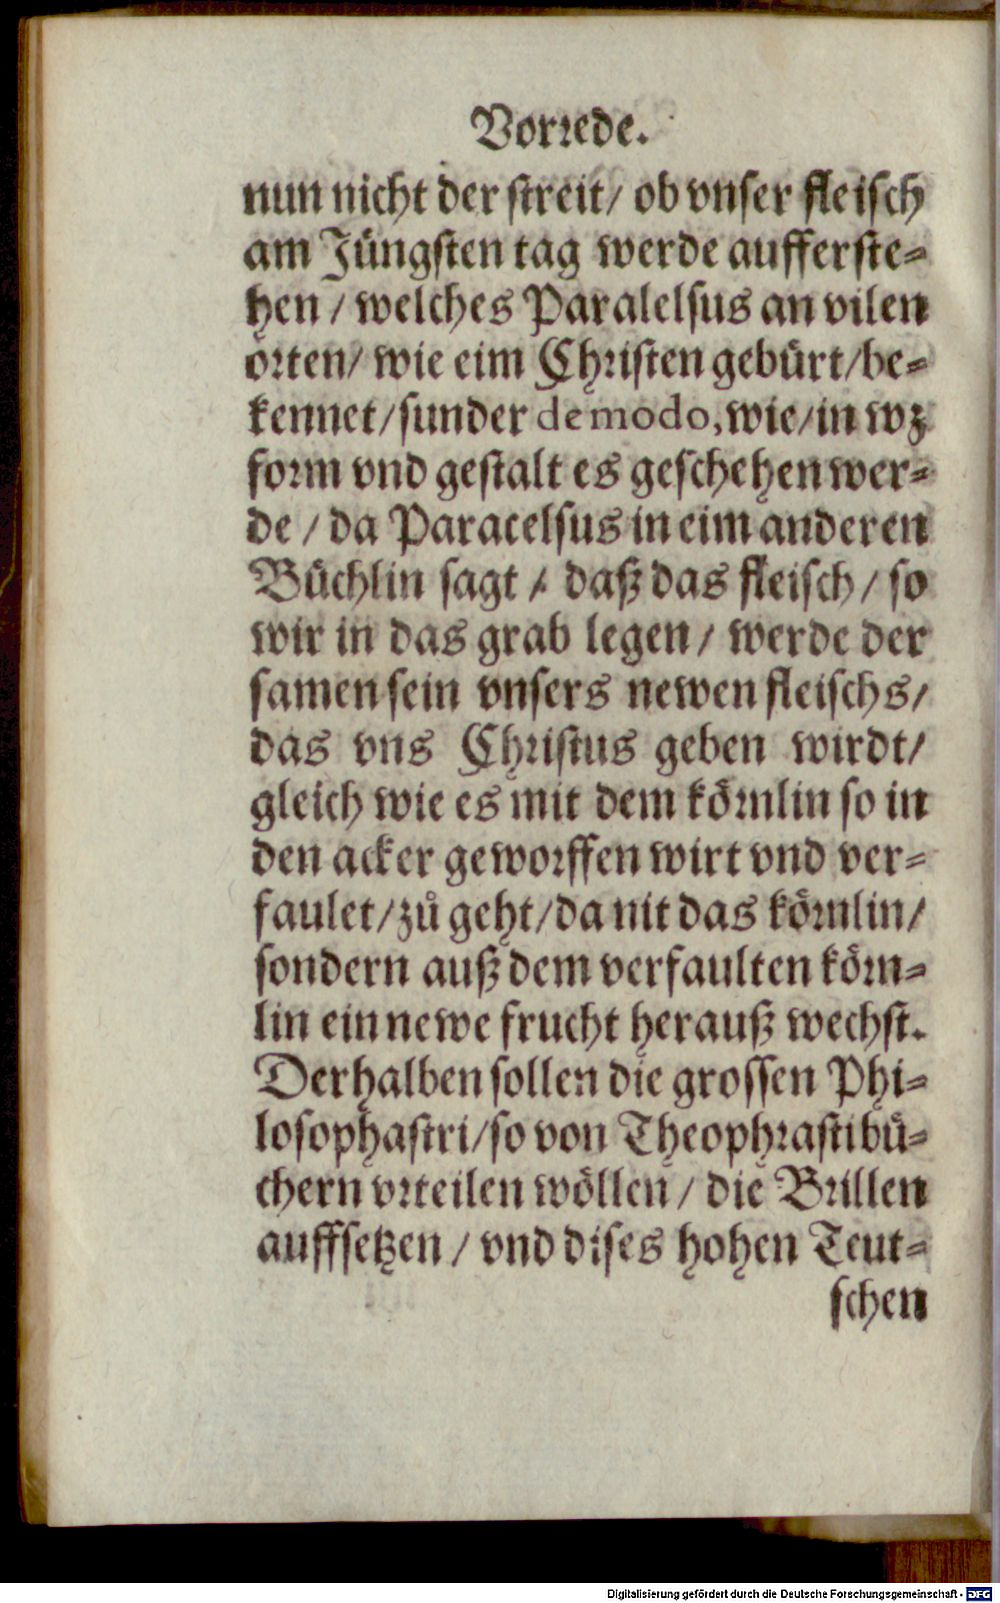 Vorrede.
nun nicht der streit/ ob vnser fleisch
am Jüngsten tag werde aufferste⸗
hen / welches Paralelsus an vilen
orten/ wie eim Christen gebürt/be⸗
kennet/sunder de modo, wie/in wz
form vnd gestalt es geschehen wer⸗
de / da Paracelsus in eim anderen
Büchlin sagt / daß das fleisch / so
wir in das grab legen / werde der
samen sein vnsers newen fleischs/
das vns Christus geben wirdt/
gleich wie es mit dem körnlin so in
den acker geworffen wirt vnd ver⸗
faulet/zů geht/da nit das körnlin/
sondern auß dem verfaulten körn⸗
lin ein newe frucht herauß wechst.
Derhalben sollen die grossen Phi⸗
losophastri/so von Theophrasti bü⸗
chern vrteilen wöllen / die Brillen
auffsetzen / vnd dises hohen Teut⸗
schen
Digitalisierung gefördert durch die Deutsche Forschungsgemeinschaft - DFG